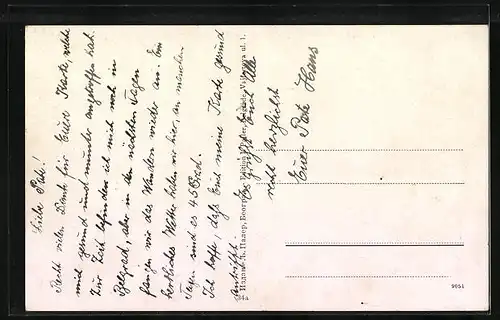 Liebe Pate!
Recht vielen Dank für Eure Karte, welche
mich gesund und munter angetroffen hat.
Zur Zeit befinden ich mich noch in
Belgrad, aber in den nächsten Tagen
fangen wir das Wandern wieder an. Ein
herrliches Wetter haben wir hier, an manchen
Tagen sind es 45 Grad.
Ich hoffe, daß Euch meine Karte gesund
antrifft.
Es grüßt Euch Alle
recht herzlich
Euer Pate Hans
34a
9051